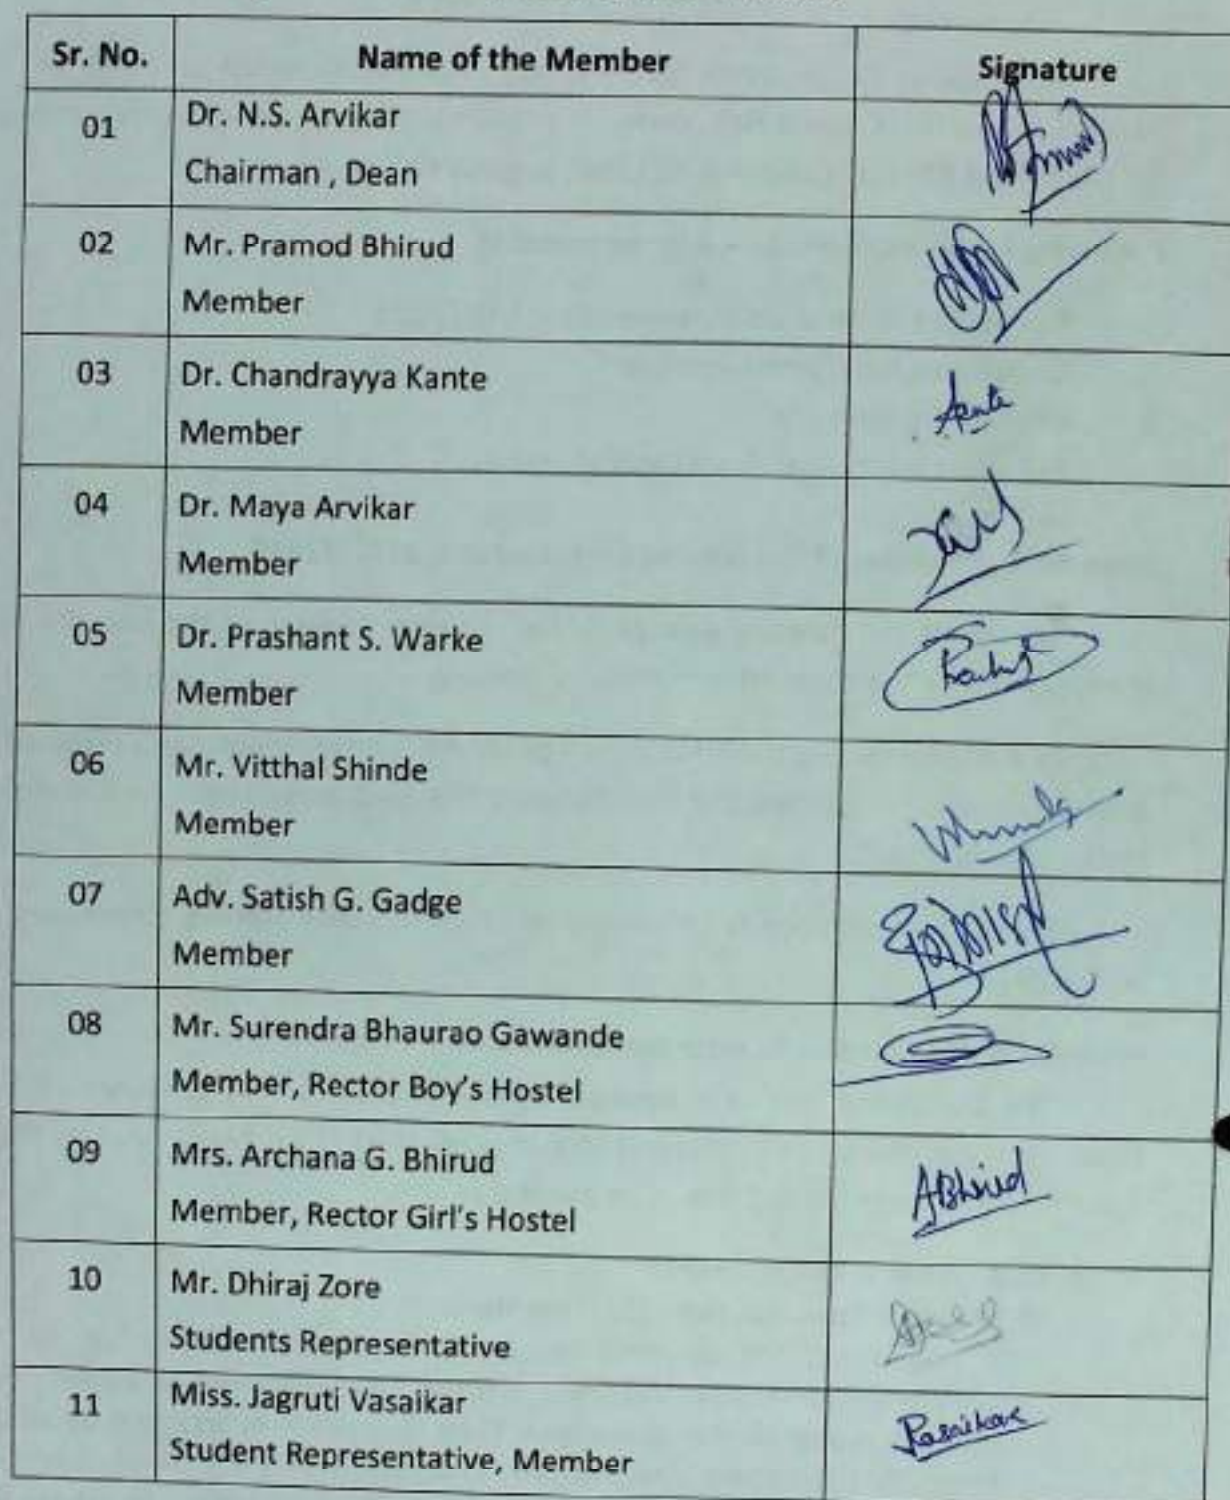 Sr. No. Name of the Member Signature
01 Dr. N.S. Arvikar
Chairman , Dean
02 Mr. Pramod Bhirud
Member
03 Dr. Chandrayya Kante
Member
04 Dr. Maya Arvikar
Member
05 Dr. Prashant S. Warke
Member
06 Mr. Vitthal Shinde
Member
07 Adv. Satish G. Gadge
Member
08 Mr. Surendra Bhaurao Gawande
Member, Rector Boy's Hostel
09 Mrs. Archana G. Bhirud ABhirud
Member, Rector Girl's Hostel
10 Mr. Dhiraj Zore
Students Representative
11 Miss. Jagruti Vasaikar
Student Representative, Member